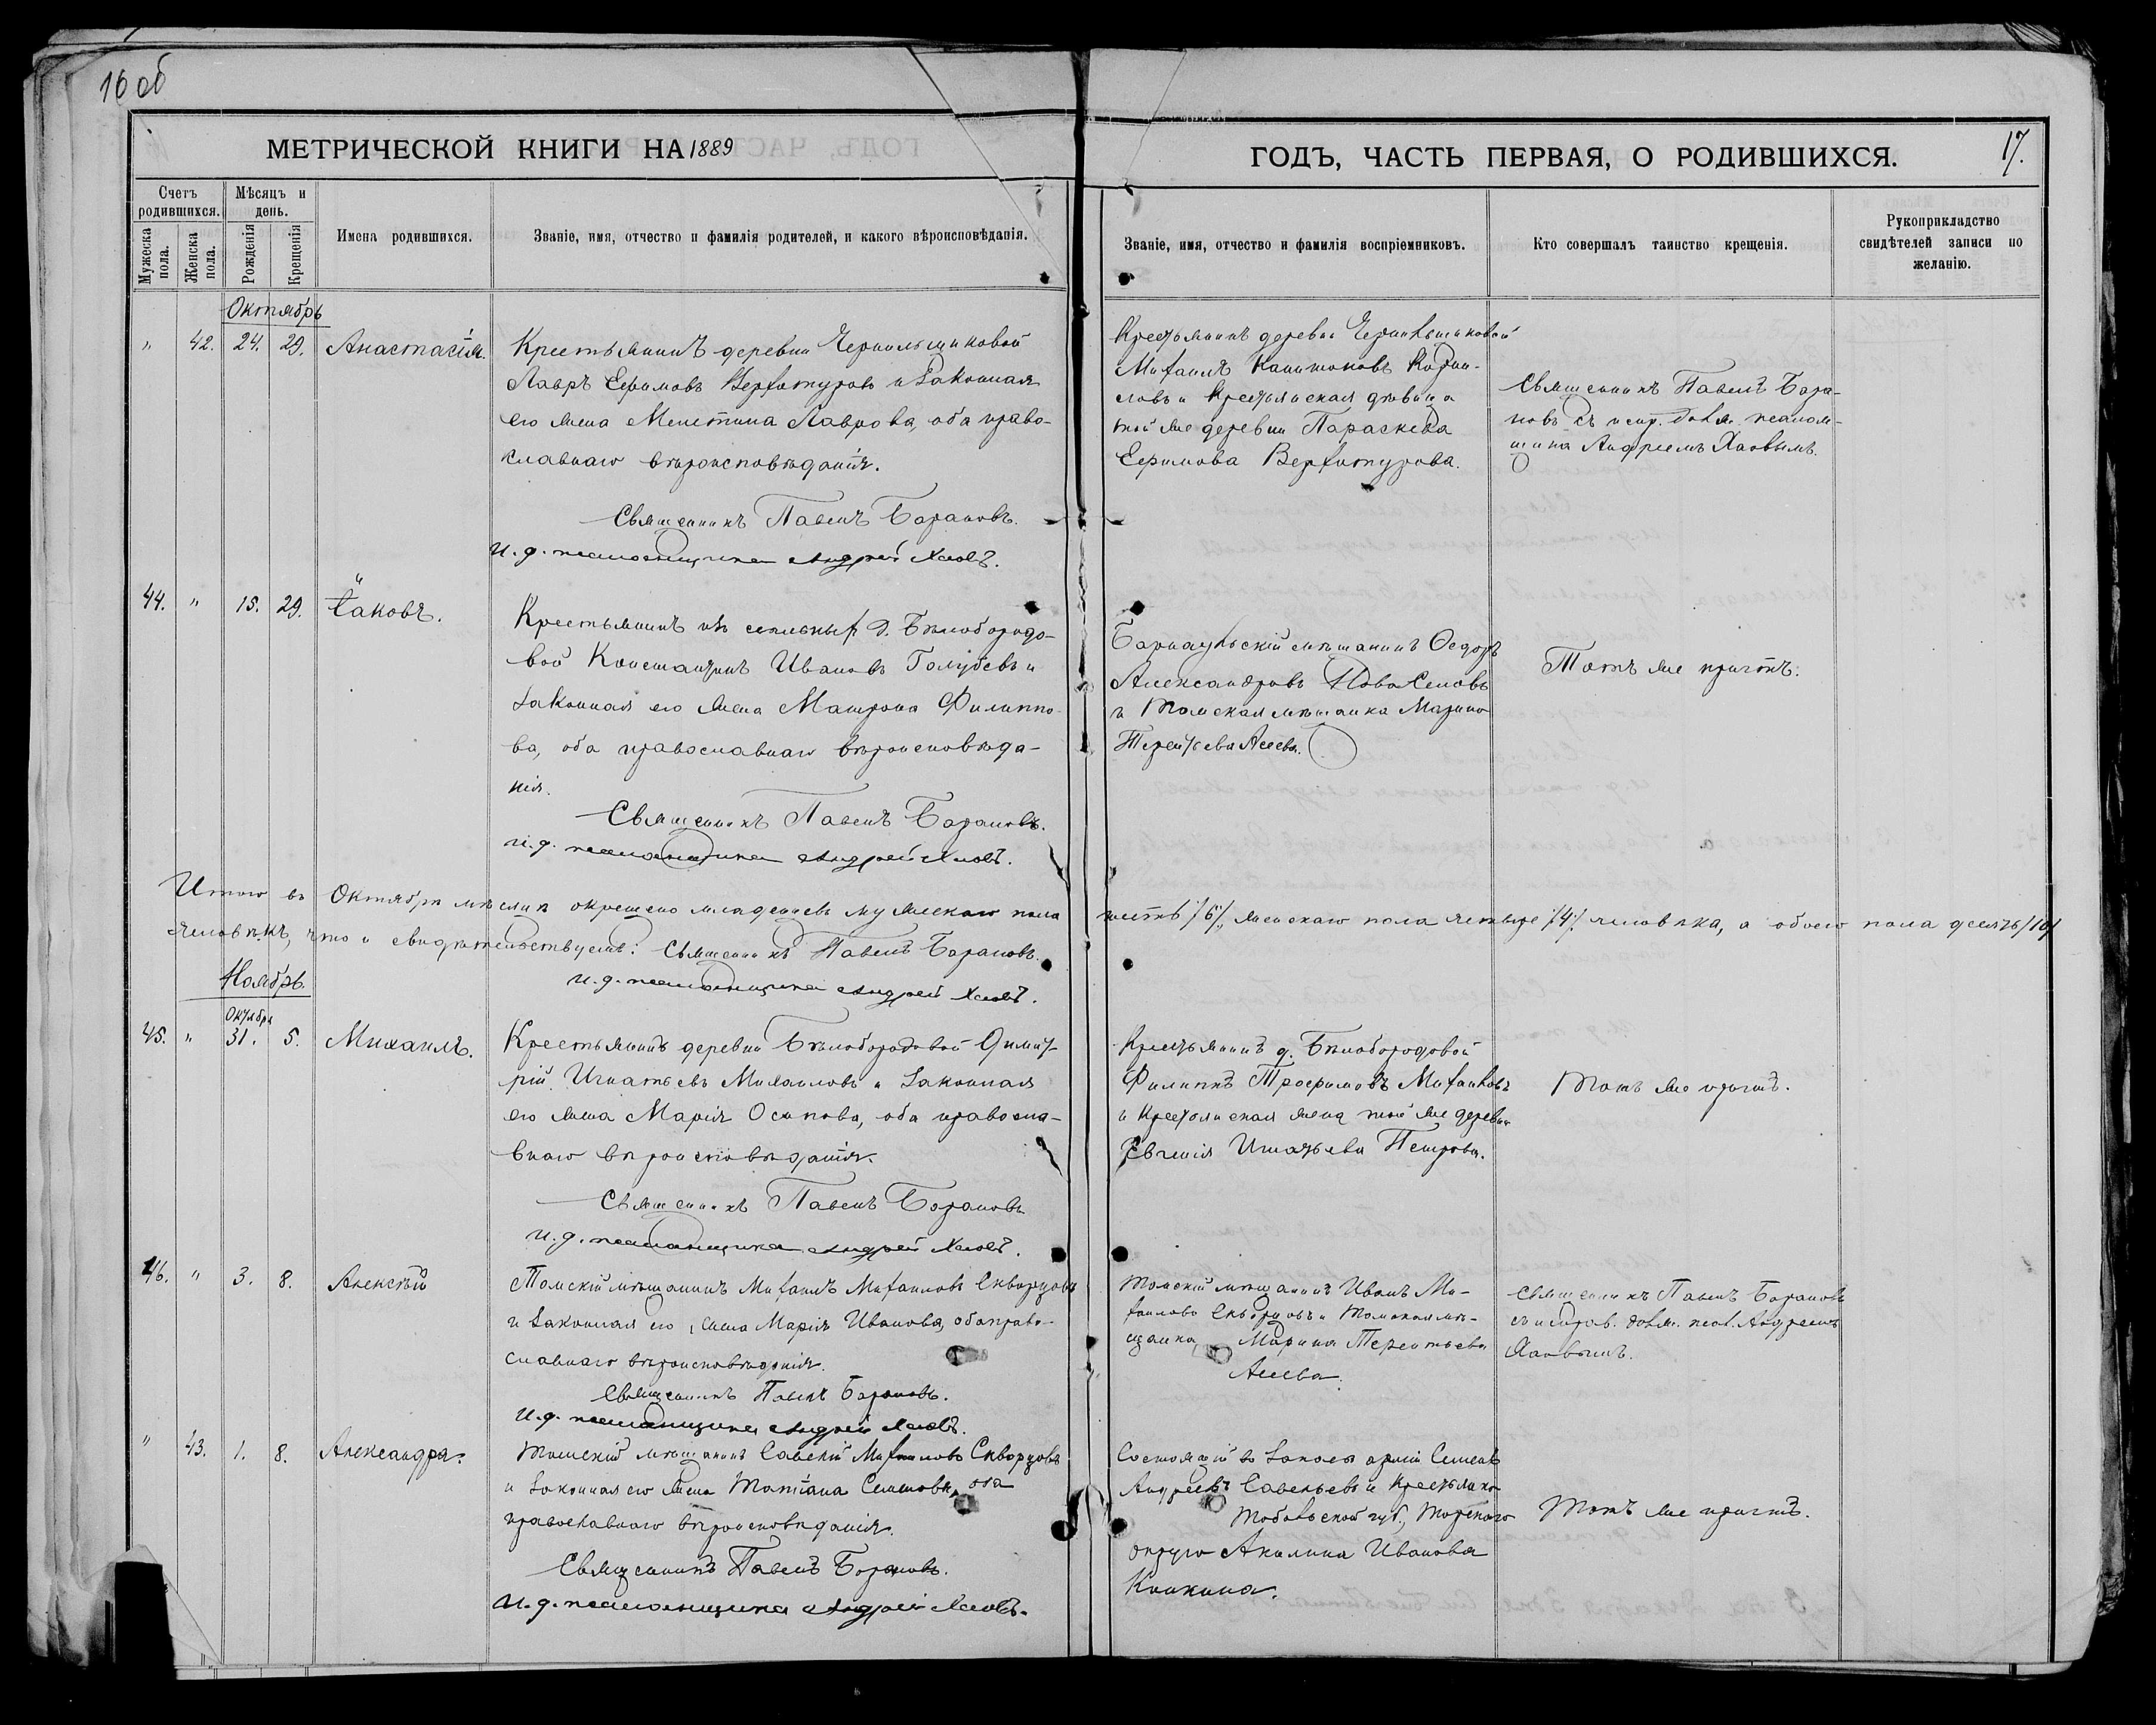 16 об
МЕТРИЧЕСКОЙ КНИГИ НА 1889
ГОДЪ, ЧАСТЬ ПЕРВАЯ, О РОДИВШИХСЯ.
17.
Счетъ родившихся.
Мѣсяцъ и день.
Мужеска пола.
Женска пола.
Рожденія
Крещенія
Имена родившихся.
Званіе, имя, отчество и фамилія родителей, и какого вѣроисповѣданія.
Званіе, имя, отчество и фамилія воспріемниковъ.
Кто совершалъ таинство крещенія.
Рукоприкладство свидѣтелей записи по желанію.
Октябрь
" 42. 24. 29. Анастасія.
Крестьянинъ деревни Чернильщиковой
Лавръ Ефимовъ Верхотуровъ и законная
его жена Лаврова, оба право-
славнаго вѣроисповѣданія.
Священникъ Павелъ Барановъ.
И. д. псаломщика Андрей Хаовъ.
Крестьянинъ деревни Чернильщиковой
Михаилъ Капитоновъ
и крестьянская дѣвица
той же деревни Параскева
Ефимова Верхотурова.
Священникъ Павелъ Бара-
новъ съ испр. долж. псалом-
щика Андреемъ Хаовымъ.
44. " 15. 29. Іаковъ.
Крестьянинъ изъ ссыльныхъ д. Бѣлобородо-
вой Константинъ Ивановъ Голубевъ и
законная его жена Матрона Филиппо-
ва, оба православнаго вѣроисповѣда-
нія.
Священникъ Павелъ Барановъ.
И. д. псаломщика Андрей Хаовъ.
Барнаульскій мѣщанинъ Ѳедоръ
Александровъ Новоселовъ
и Томская мѣщанка Марина
Терентьева Асеева.
Тотъ же причтъ.
Итого въ Октябрѣ мѣсяцѣ окрещено младенцевъ мужескаго пола шесть /6/, женскаго пола четыре /4/ человѣка, а обоего пола десять /10/
человѣкъ, что и свидѣтельствуемъ: Священникъ Павелъ Барановъ.
И. д. псаломщика Андрей Хаовъ.
Ноябрь.
Октября
45. " 31. 5. Михаилъ.
Крестьянинъ деревни Бѣлобородовой Димит-
рій Игнатьевъ Михаиловъ и законная
его жена Марія Осипова, оба правосла-
внаго вѣроисповѣданія.
Священникъ Павелъ Барановъ
И. д. псаломщика Андрей Хаовъ.
Крестьянинъ д. Бѣлобородовой
Филиппъ Трофимовъ Михаиловъ
и крестьянская жена той же деревни
Евгенія Игнатьева Петрова.
Тотъ же причтъ.
46. " 3. 8. Алексѣй
Томскій мѣщанинъ Михаилъ Михаиловъ Скворцовъ
и законная его жена Марія Иванова, оба право-
славнаго вѣроисповѣданія.
Священникъ Павелъ Барановъ.
И. д. псаломщика Андрей Хаовъ.
Томскій мѣщанинъ Иванъ Ми-
хаиловъ Скворцовъ и Томская мѣ-
щанка Марина Терентьева
Асеева.
Священникъ Павелъ Барановъ
съ исправ. долж. псал. Андреемъ
Хаовымъ.
" 43. 1. 8. Александра.
Томскій мѣщанинъ Савелій Михаиловъ Скворцовъ
и законная его жена Татіана Семенова, оба
православнаго вѣроисповѣданія.
Священникъ Павелъ Барановъ.
И. д. псаломщика Андрей Хаовъ.
Состоящій въ запасѣ арміи Семенъ
Андреевъ Савельевъ и крестьянка
Тобольской губ., Тарскаго
округа Акилина Иванова
Тотъ же причтъ.